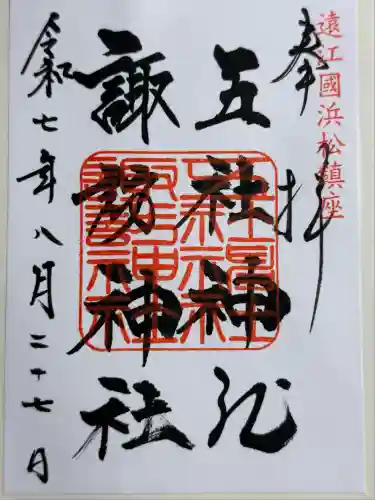 遠江國浜松鎮座
奉拝
五社神社
諏訪神社
令和七年八月二十七日